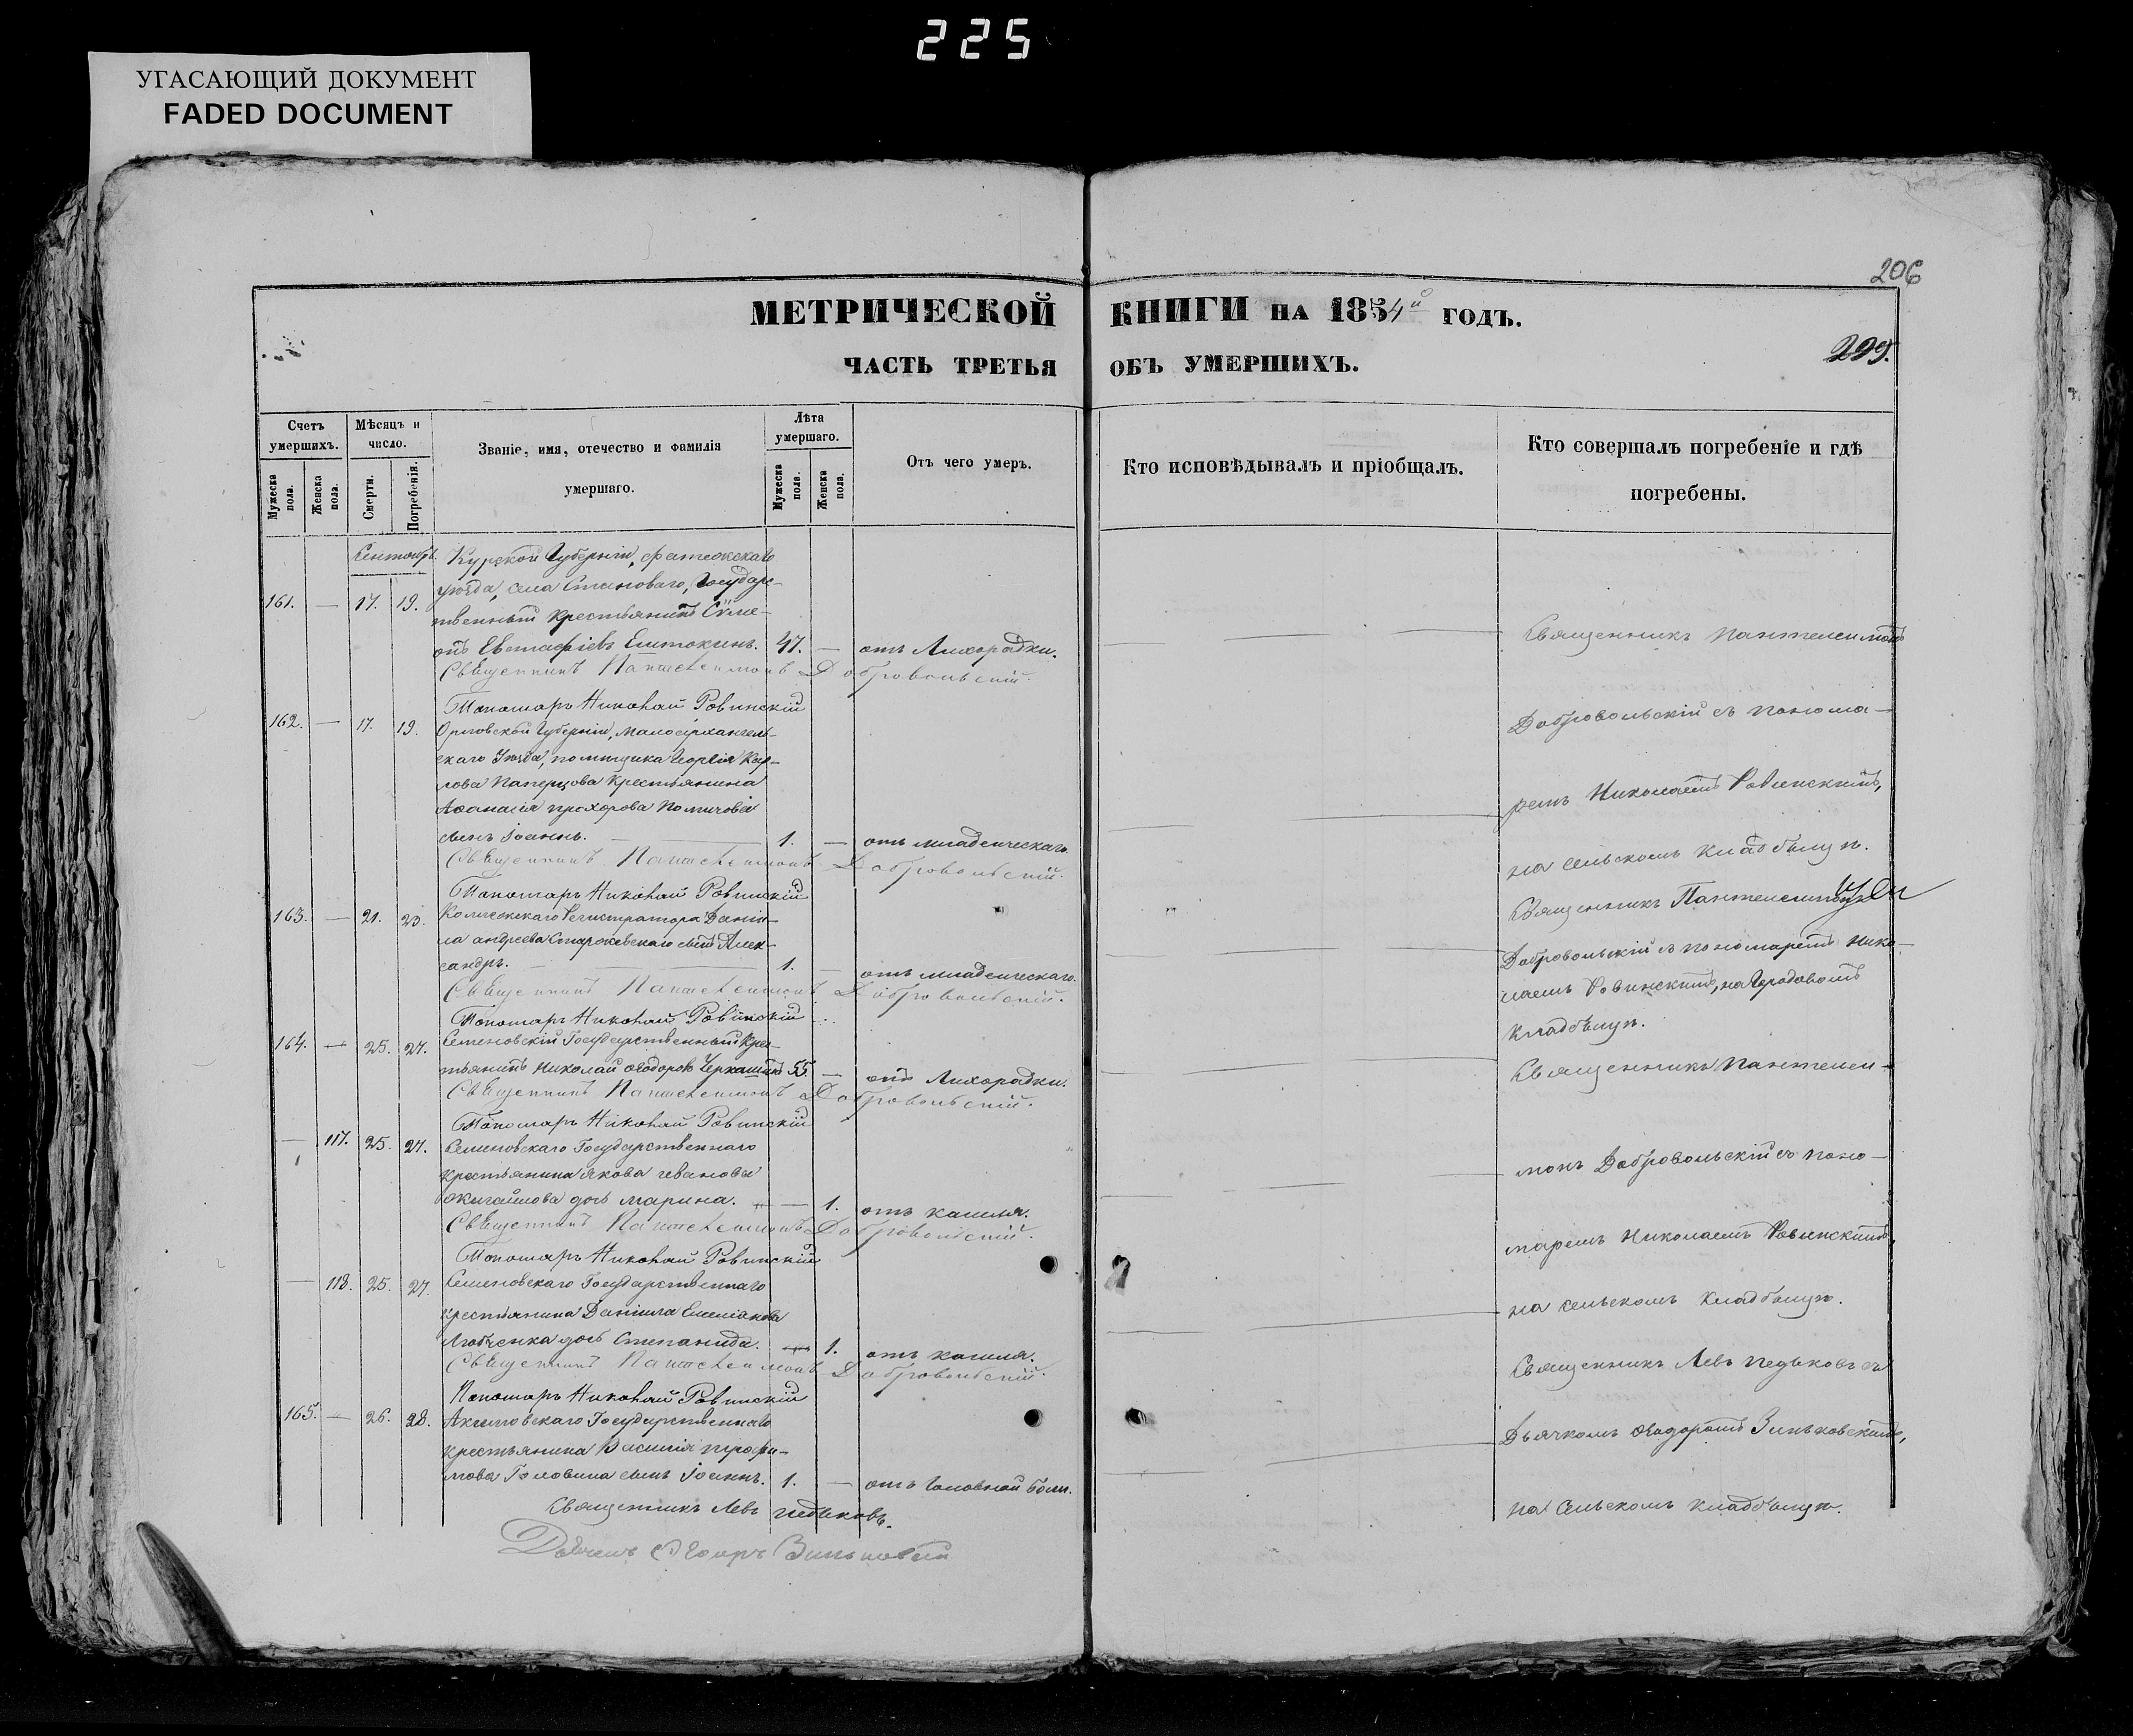 225
УГАСАЮЩИЙ ДОКУМЕНТ
FADED DOCUMENT
206
МЕТРИЧЕСКОЙ КНИГИ НА 1854й ГОДЪ.
299.
ЧАСТЬ ТРЕТЬЯ ОБЪ УМЕРШИХЪ.
Счетъ умершихъ.
Мужеска пола.
Женска пола.
Мѣсяцъ и число.
Смерти.
Погребенія.
Званіе, имя, отечество и фамилія
умершаго.
Лѣта умершаго.
Мужеска пола.
Женска пола.
Отъ чего умеръ.
Кто исповѣдывалъ и пріобщалъ.
Кто совершалъ погребеніе и гдѣ
погребены.
Сентябрь
Курской Губерніи, Фатежскаго
уѣзда, села Становаго, Государс-
161. — 17. 19. твенный крестьянинъ Сѵме-
онъ Евстафіевъ 47. — отъ Лихорадки.
Священникъ Пантелеимонъ Добровольскій.
Пономарь Николай Ровинскій
162. — 17. 19. Орловской Губерніи, Малоархангель-
скаго Уѣзда, помѣщика Георгія Кар-
лова крестьянина
Аѳанасія Прохорова
сынъ Іоаннъ. — 1. — отъ младенческаго
Священникъ Пантелеимонъ Добровольскій.
Пономарь Николай Ровинскій
163. — 21. 23. Коллежскаго Регистратора Даніи-
ла Андреева сынъ Алек-
сандръ. — 1. — отъ младенческаго.
Священникъ Пантелеимонъ Добровольскій.
Пономарь Николай Ровинскій
164. — 25. 27. Семеновскій Государственный крес-
тьянинъ Николай Ѳеодоровъ Черкашинъ 55. — отъ Лихорадки.
Священникъ Пантелеимонъ Добровольскій.
Пономарь Николай Ровинскій
— 117. 25. 27. Семеновскаго Государственнаго
крестьянина Якова Иванова
дочь Марина. — 1. отъ кашля.
Священникъ Пантелеимонъ Добровольскій.
Пономарь Николай Ровинскій
— 118. 25. 27. Семеновскаго Государственнаго
крестьянина Даніила Емеліанова
дочь Степанида. 1. отъ кашля.
Священникъ Пантелеимонъ Добровольскій.
Пономарь Николай Ровинскій
165. — 26. 28. Акимовскаго Государственнаго
крестьянина Василія Трофи-
мова Головина сынъ Іоаннъ. 1. — отъ головной боли.
Священникъ Левъ Педьковъ.
Дьячекъ Ѳеодоръ Зиньковскій
Священникъ Пантелеимонъ
Добровольскій съ понома-
ремъ Николаемъ Ровинскимъ,
на сельскомъ кладбищѣ.
Священникъ Пантелеимонъ
Добровольскій съ пономаремъ Нико-
лаемъ Ровинскимъ, на Городовомъ
кладбищѣ.
Священникъ Пантелеи-
монъ Добровольскій съ поно-
маремъ Николаемъ Ровинскимъ,
на сельскомъ кладбищѣ.
Священникъ Левъ Педьковъ съ
Дьячкомъ Ѳеодоромъ Зиньковскимъ,
на сельскомъ кладбищѣ.